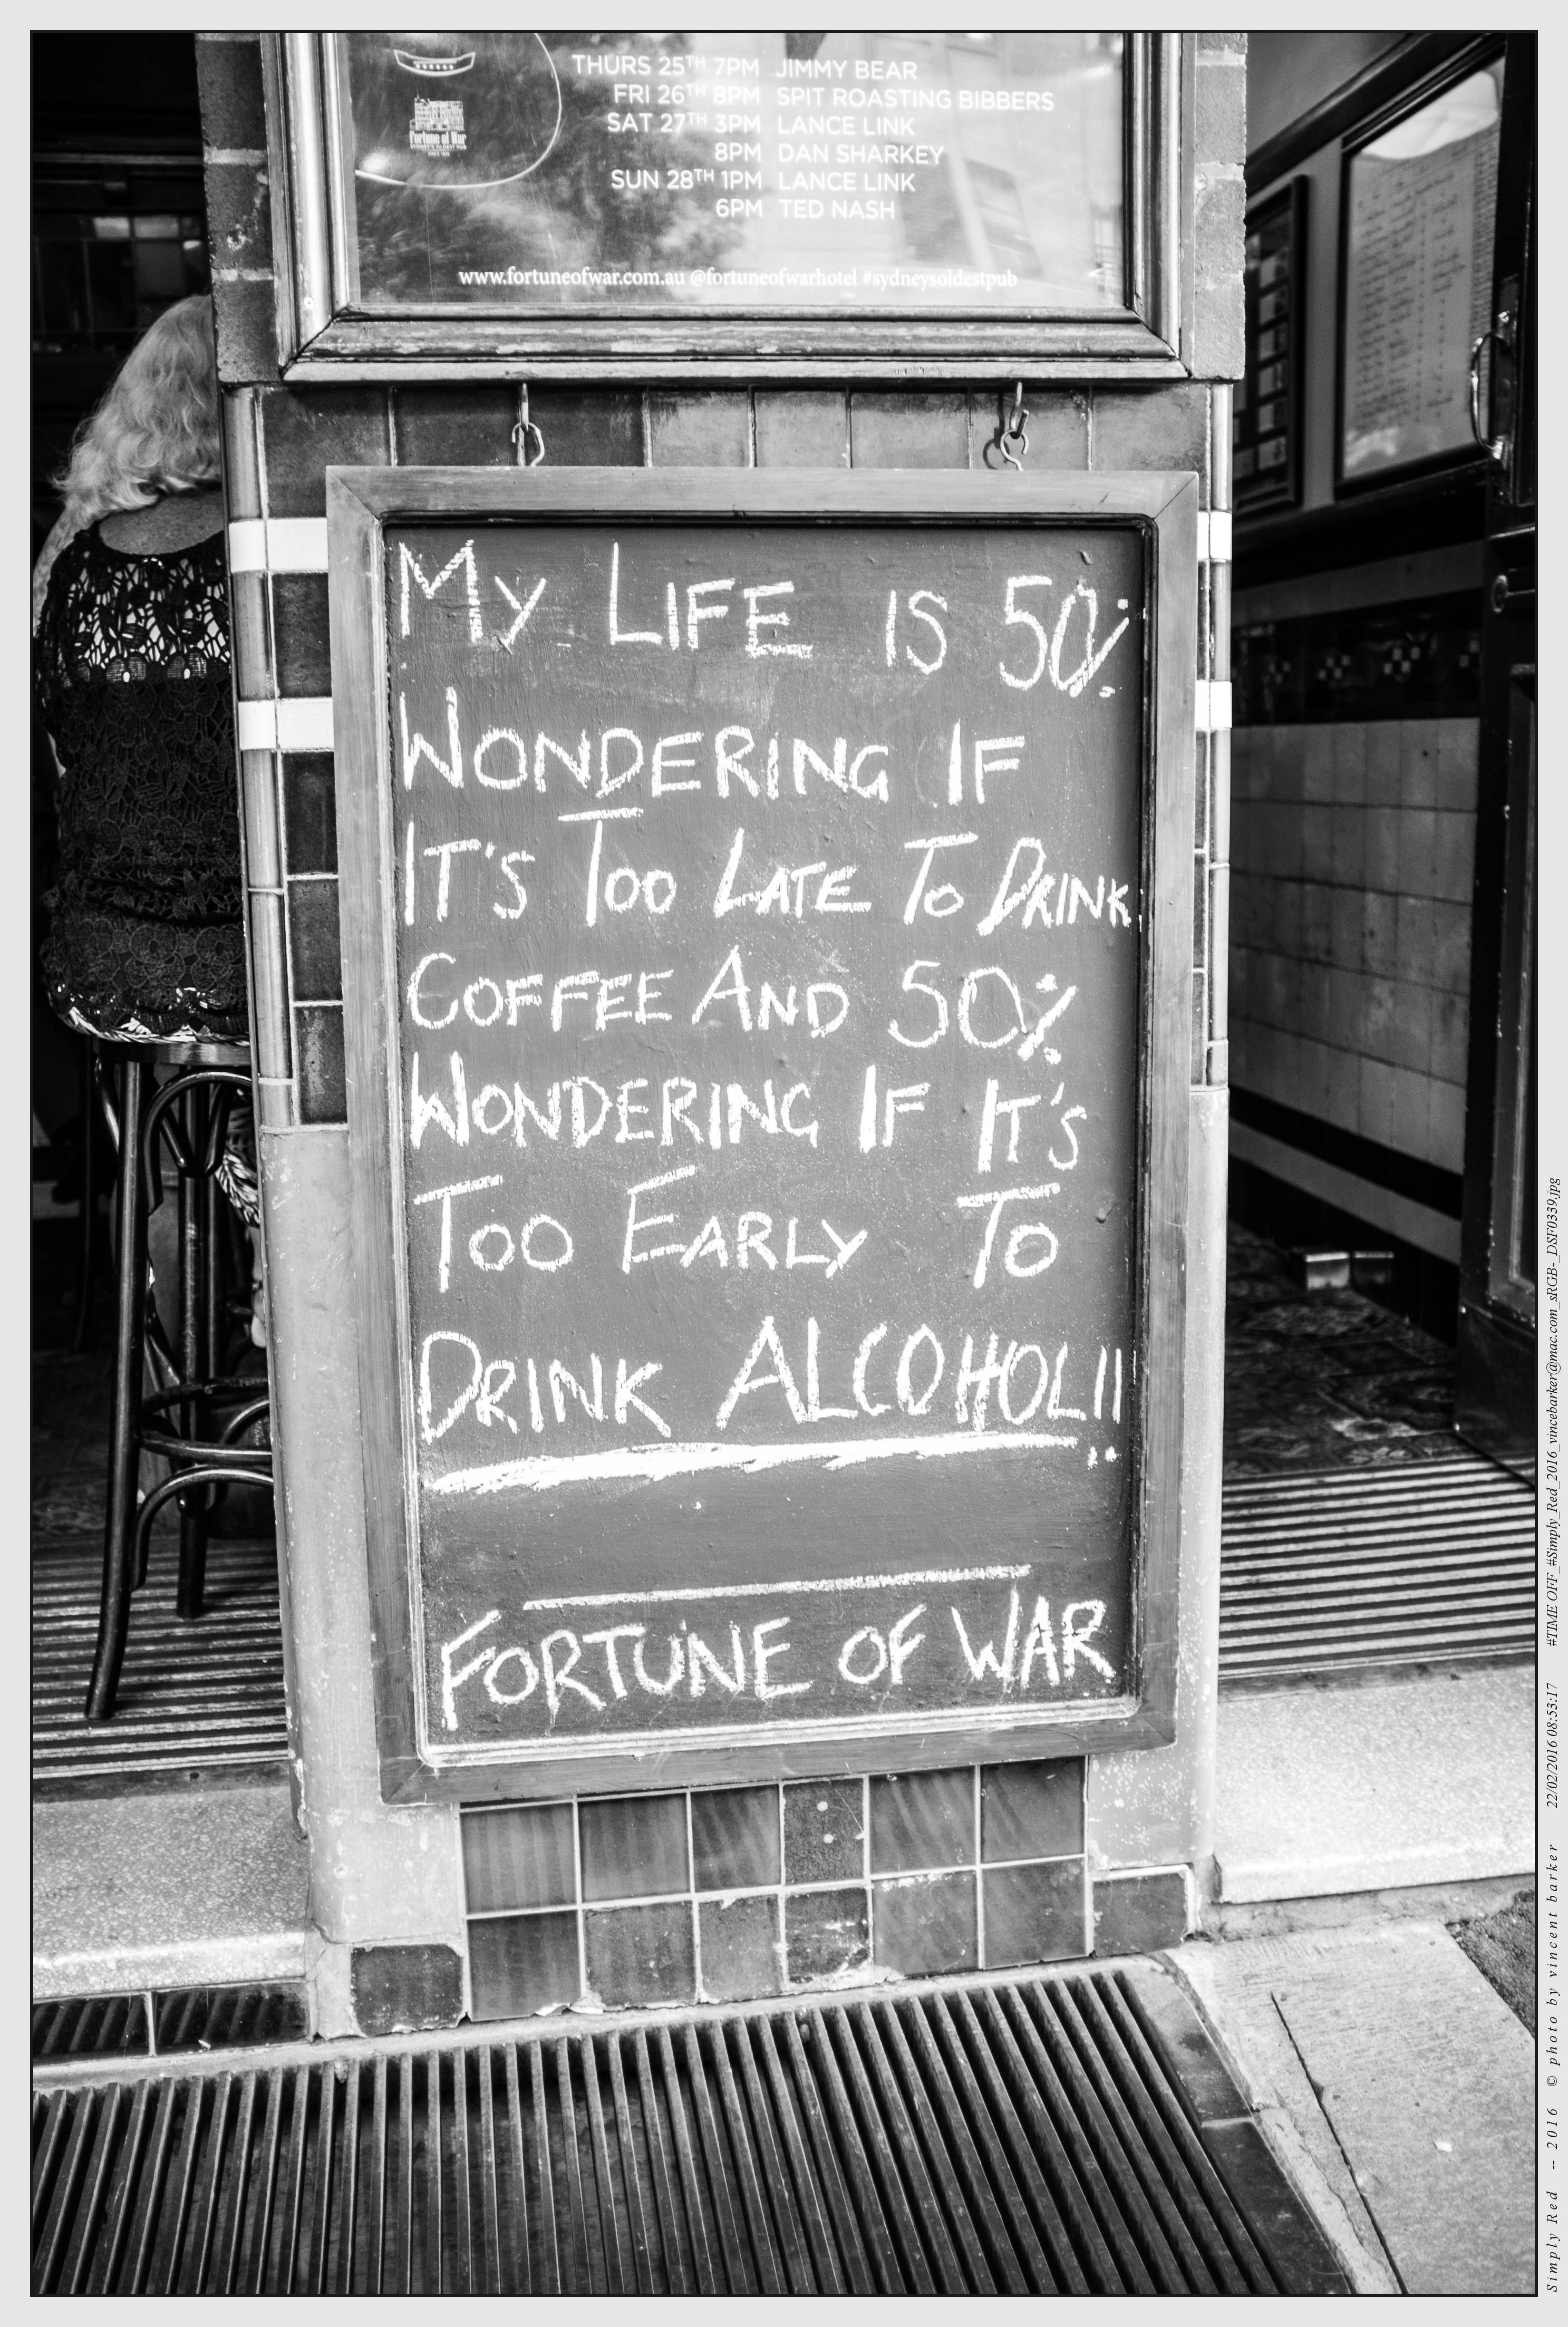 THURS 25TH 7PM JIMMY BEAR
FRI 26TH 8PM SPIT ROASTING BIBBERS
SAT 27TH 3PM LANCE LINK
8PM DAN SHARKEY
SUN 28TH 1PM LANCE LINK
6PM TED NASH
Fortune of War
SYDNEY'S OLDEST PUB
www.fortuneofwar.com.au @fortuneofwarhotel #sydneysoldestpub
MY LIFE IS 50%
WONDERING IF
IT'S TOO LATE TO DRINK
COFFEE AND 50%
WONDERING IF IT'S
TOO EARLY TO
DRINK ALCOHOL!!
FORTUNE OF WAR
Simply Red -- 2016 © photo by vincent barker 22/02/2016 08:53:17 #TIME OFF_#Simply_Red_2016_vincebarker@mac.com_sRGB-_DSF0339.jpg